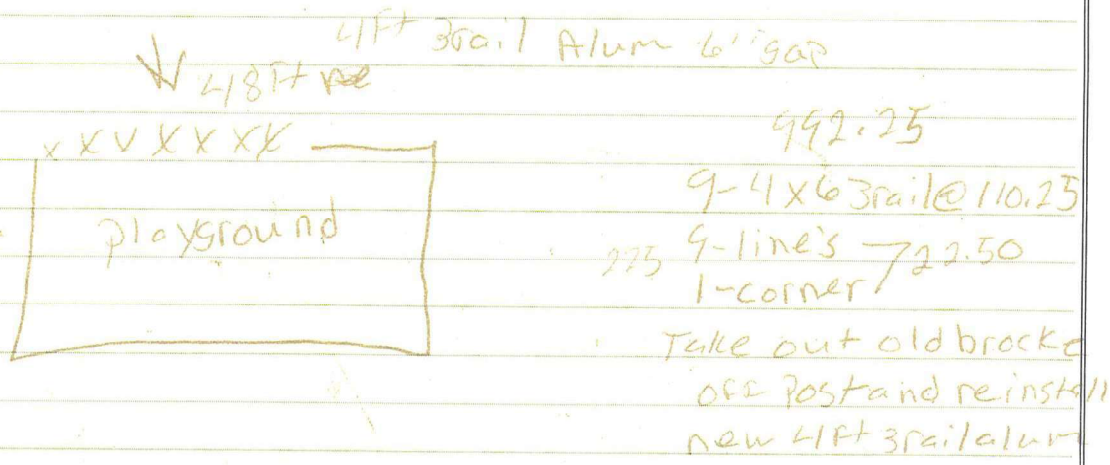 4Ft 3rail Alum 6" gap
48Ft
x X V X X X X
playground
992.25
9-4x6 3rail@110.25
225 9-line's
1-corner 722.50
Take out old brocke
off Post and reinstall
new 4Ft 3railalum